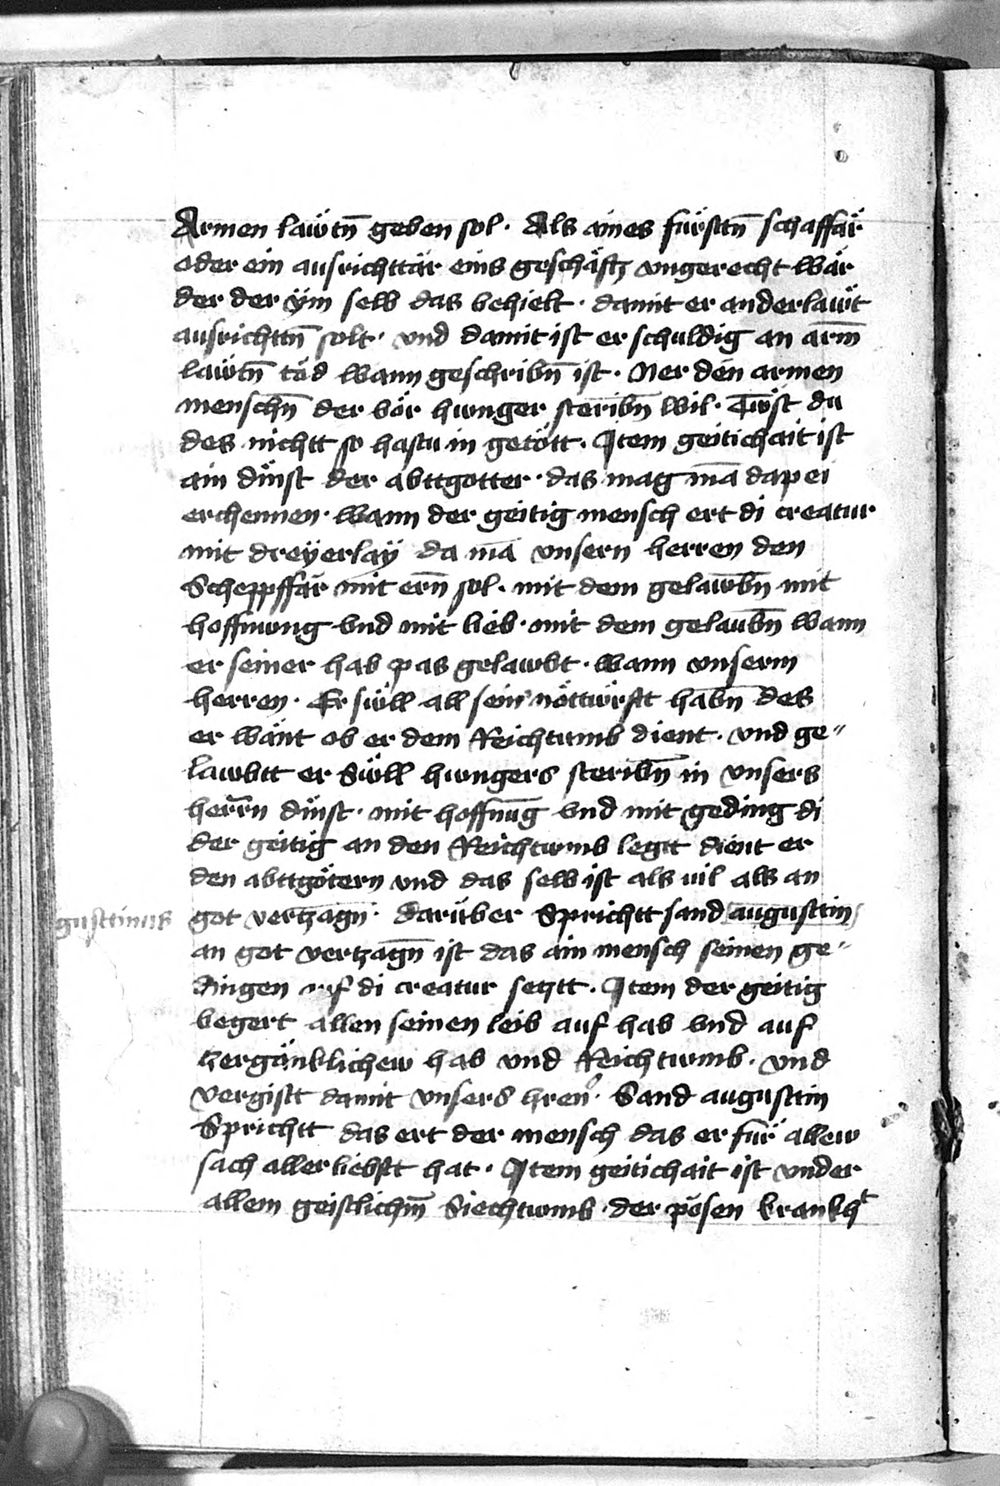 Armen läwtn̄ geben sol. Als aines fürstn̄ schaffär
oder ein ausrichttär eins geschäftz vngerecht wär
der der ÿm selb das behielt. damit er ander läwt
ausrichttn̄ solt. vnd damit ist er schuldig an arm̄
läwtn̄ töd wann geschribn̄ ist. Ner den armen
menschn̄ der vör hwnger steribn̄ wil. Twst du
des nichtt so hastu in getött. Item geitichait ist
ain dinst der abttgotter. das mag mā dapei
erchennen. wann der geitig mensch ert di creatur
mit dreÿerlaÿ da mā vnsern herren den
Scheppffär mit ern̄ sol. mit dem gelawbn̄ mit
hoffnwng vnd mit lieb. mit dem gelaubn̄ wann
er seiner hab pas gelawbt. wann vnserm
herren. Er süll all sein nöttürftt habn̄ des
er wänt ob er dem Reichtumb dient. vnd ge„
lawbtt er Süll hwngers steribn̄ in vnsers
herrn̄ dinst. mit hoffnūg vnd mit geding di
der geitig an den Reichtwmb legtt dient er
den abttgötern vnd das selb ist als uil als an
gusttinus got vertzagn̄. Darüber Sprichtt sand augusttin
an got vertzagn̄ ist das ain mensch seinen ge„
dingen auf di creatur setztt. Item der geitig
begert allen seinen leib auf hab vnd auf
zergänklichew hab vnd Reichtwmb. vnd
vergistt damit vnsers hren̄. Sand augusttin
Sprichtt das ert der mensch das er für allew
sach aller liebstt hat. Item geitichait ist vnder
allem geistlichm̄ Siechtwmb. der pösen krankht